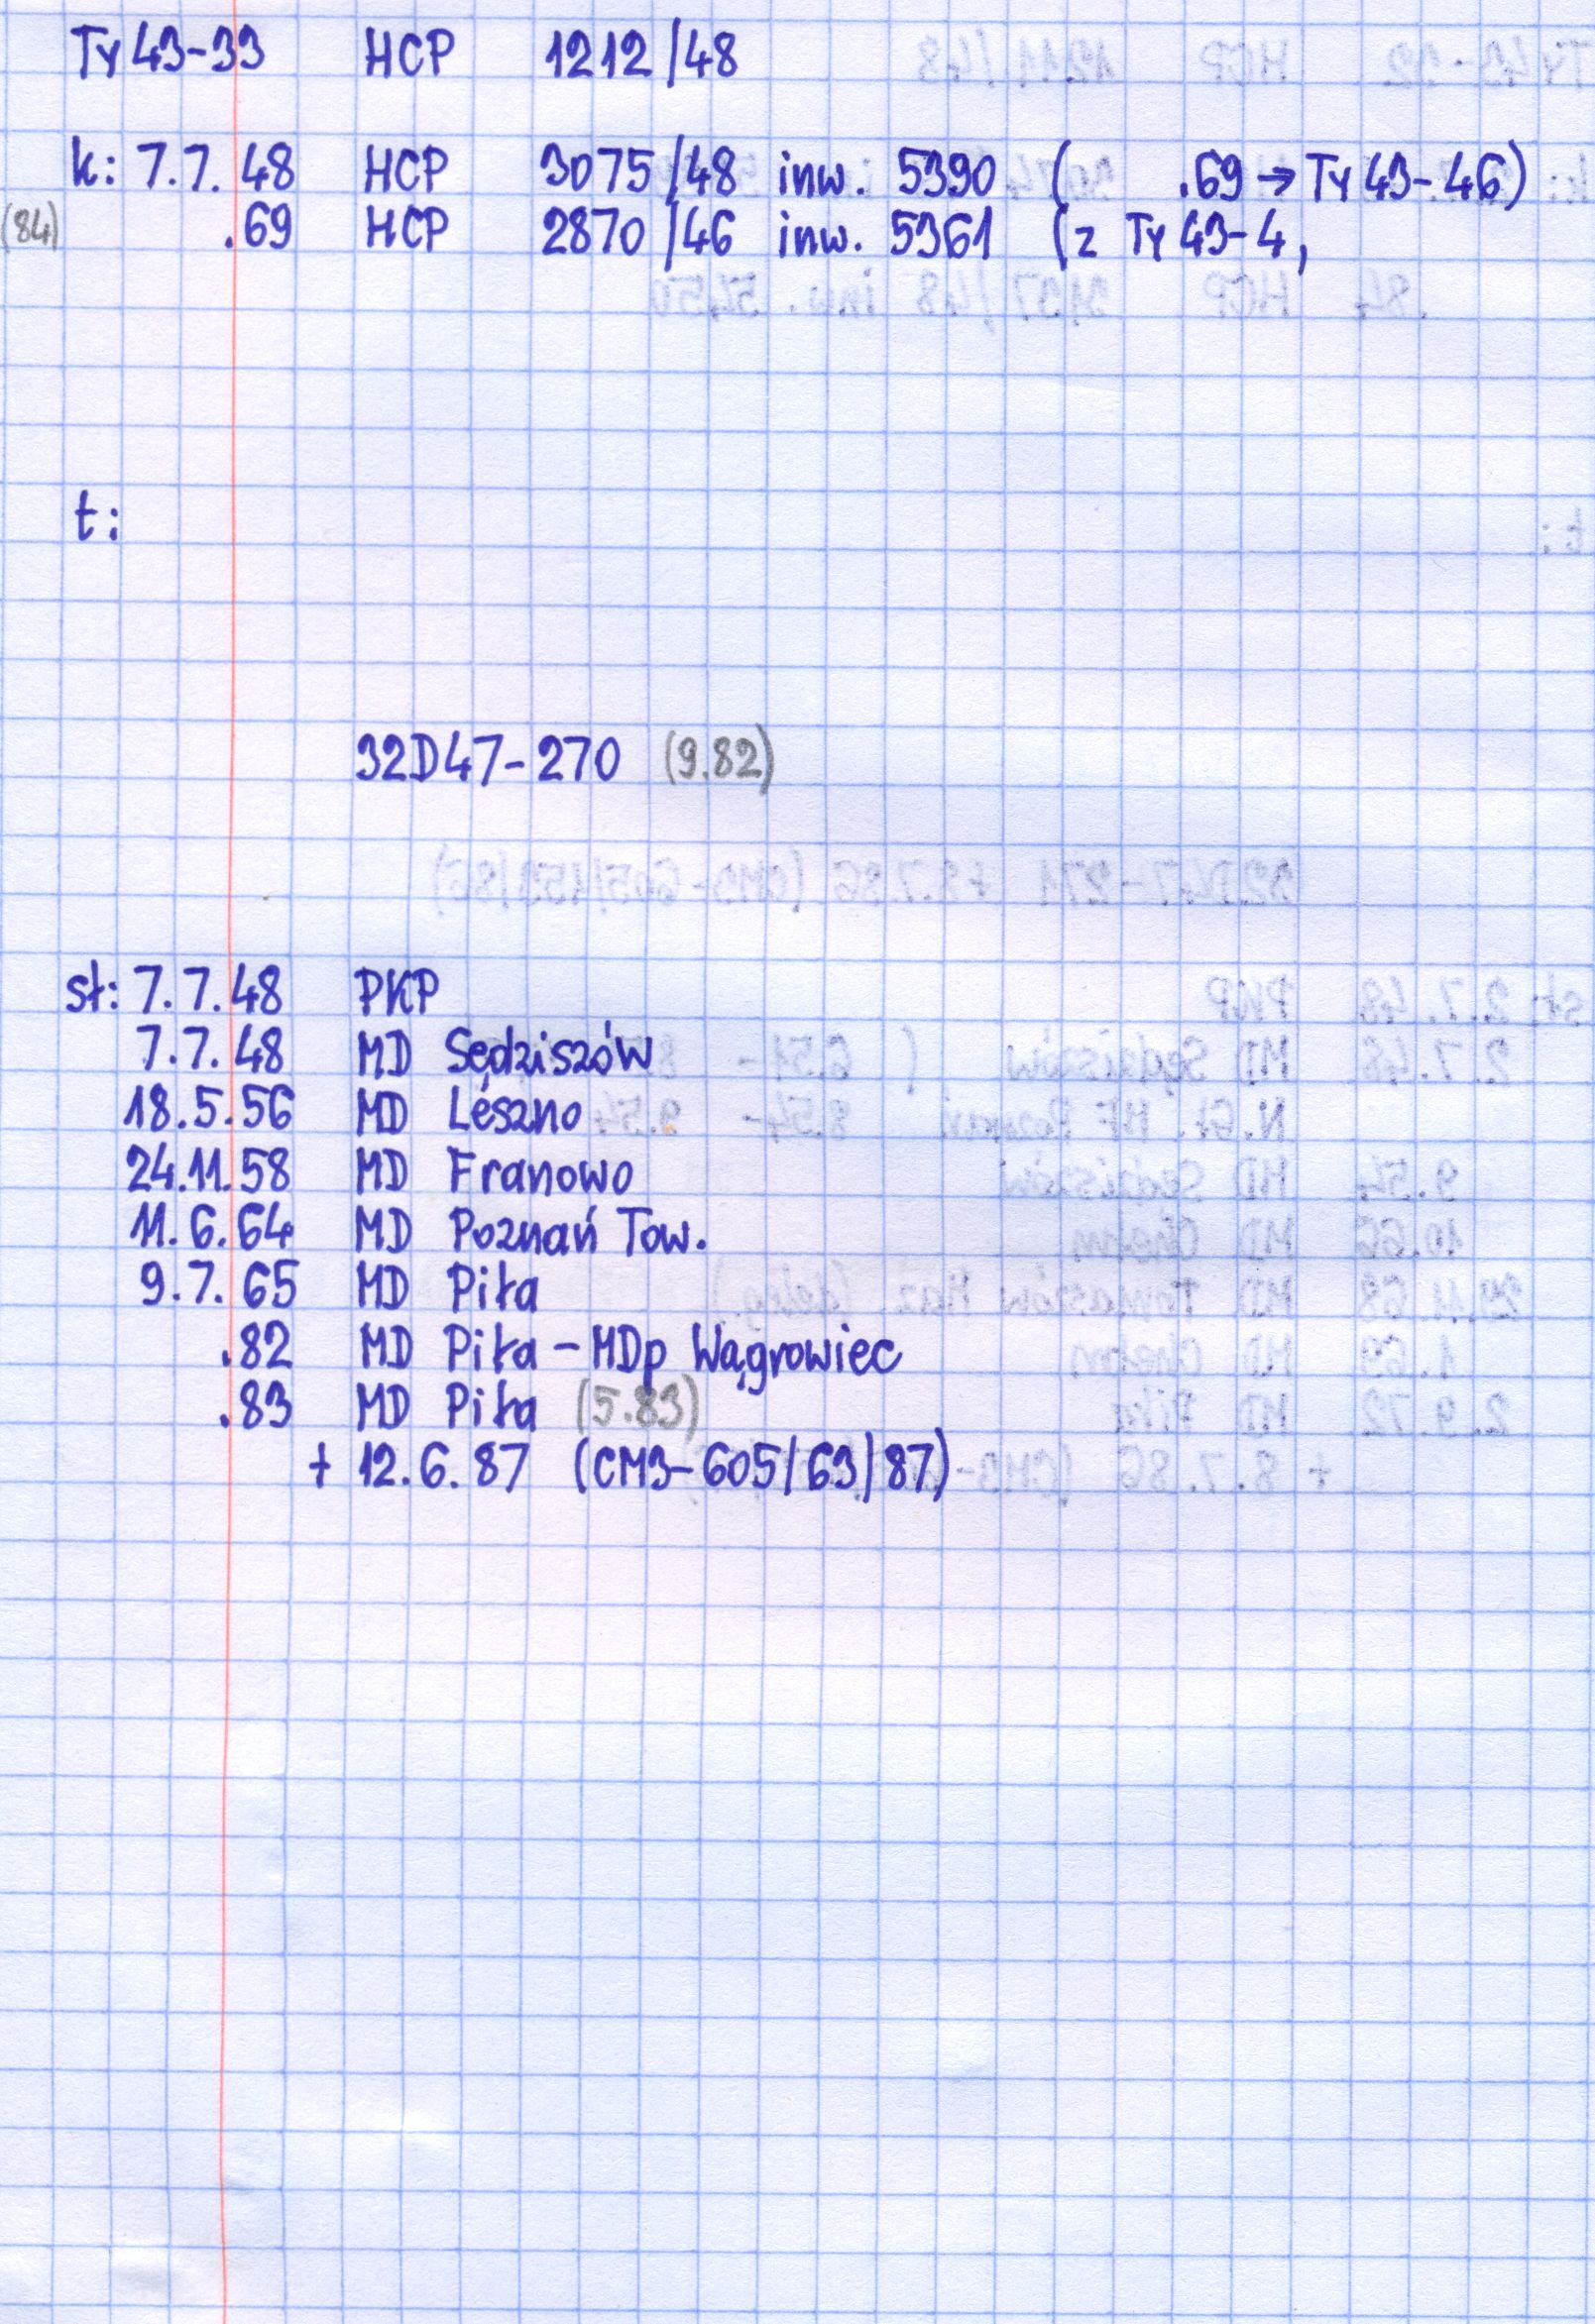 Ty43-33 HCP 1212/48
k: 7.7.48 HCP 3075/48 inw. 5390 ( .69 → Ty43-46)
(84) .69 HCP 2870/46 inw. 5361 (z Ty43-4,
t:
32D47-270 (9.82)
sł: 7.7.48 PKP
7.7.48 MD Sędziszów
18.5.56 MD Leszno
24.11.58 MD Franowo
11.6.64 MD Poznań Tow.
9.7.65 MD Piła
.82 MD Piła - MDp Wągrowiec
.83 MD Piła (5.83)
+ 12.6.87 (CM3-605/63/87)